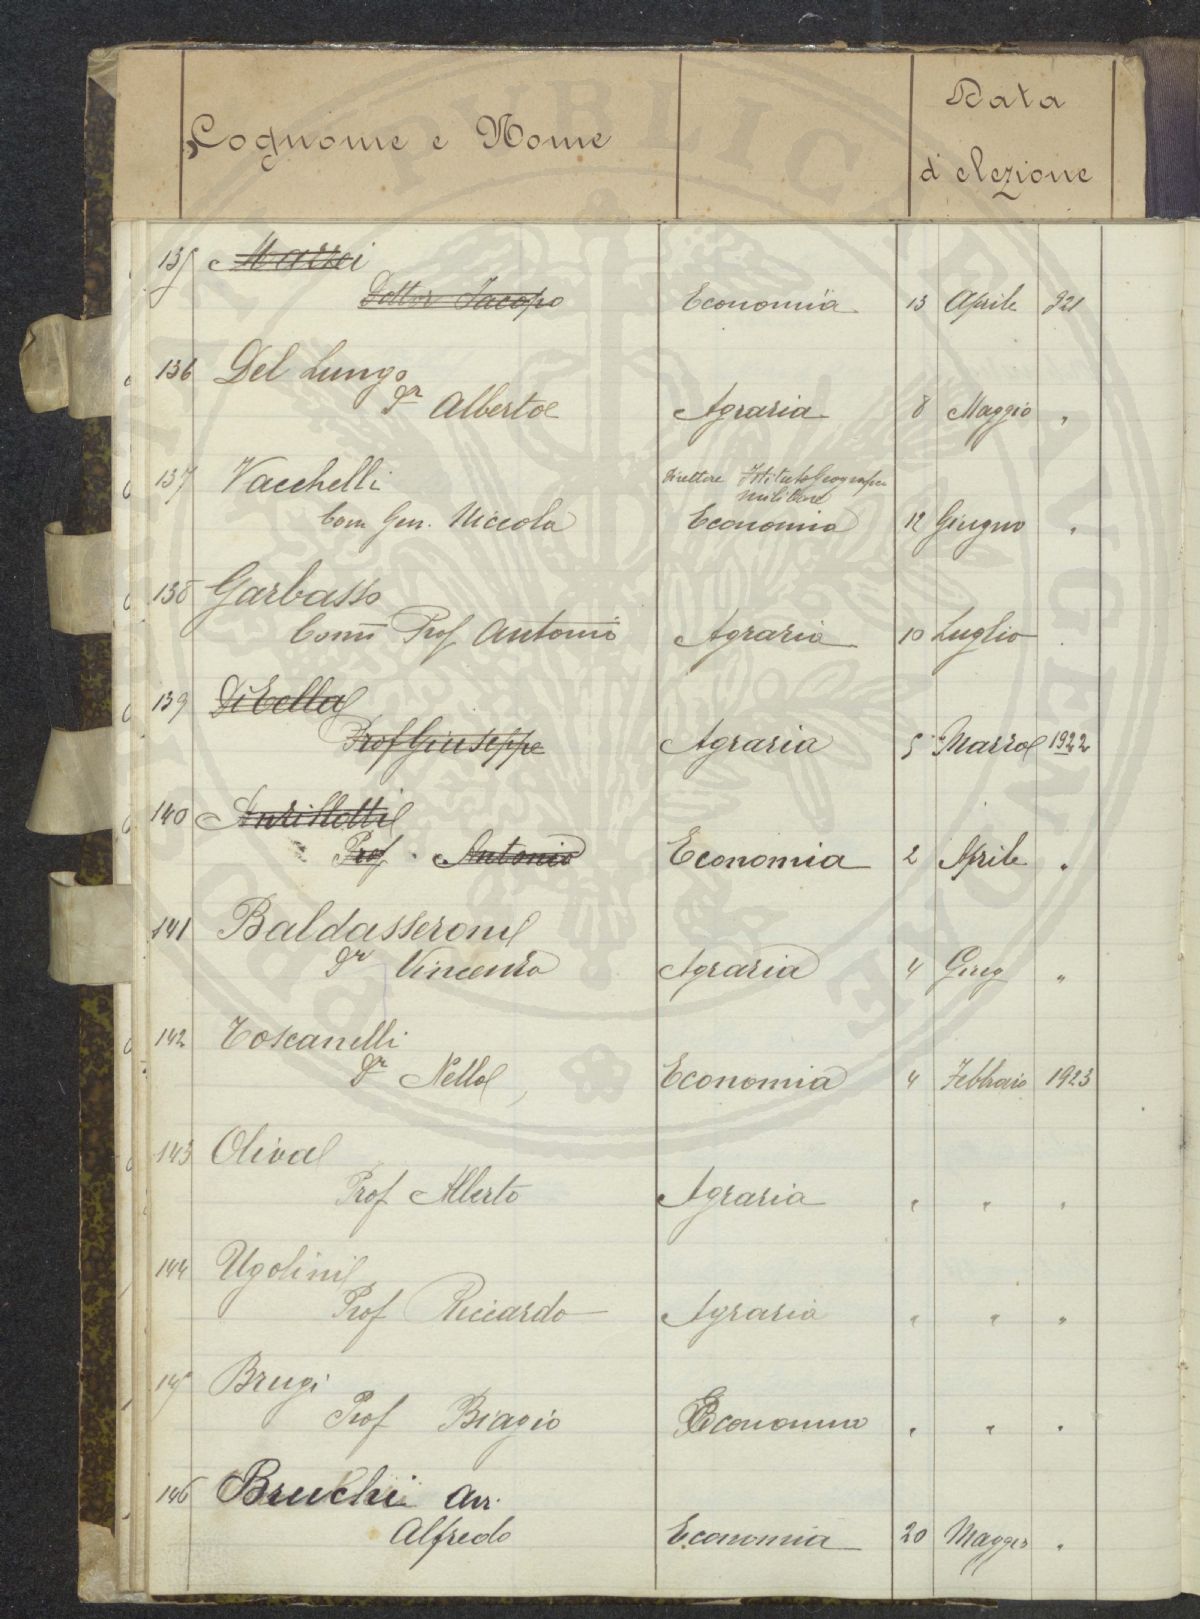 Cognome e Nome
Data
d'elezione
135 Mazzei
Dottor Jacopo Economia 13 Aprile 921
136 Del Lungo
Dr Alberto Agraria 8 Maggio "
137 Vacchelli Direttore Istituto Geografico
militare
Com Gen. Niccola Economia 12 Giugno "
138 Garbasso
Comm Prof Antonio Agraria 10 Luglio
139 Di Tella
Prof Giuseppe Agraria 5 Marzo 1922
140
Prof. Antonio Economia 2 Aprile "
141 Baldasseroni
Dr Vincenzo Agraria 4 Giug "
142 Toscanelli
Dr Nello Economia 4 Febbraio 1923
143 Oliva
Prof Alberto Agraria " " "
144 Ugolini
Prof Riccardo Agraria " " "
145 Brugi
Prof Biagio Economia " " "
146 Bruchi Avv.
Alfredo Economia 20 Maggio "